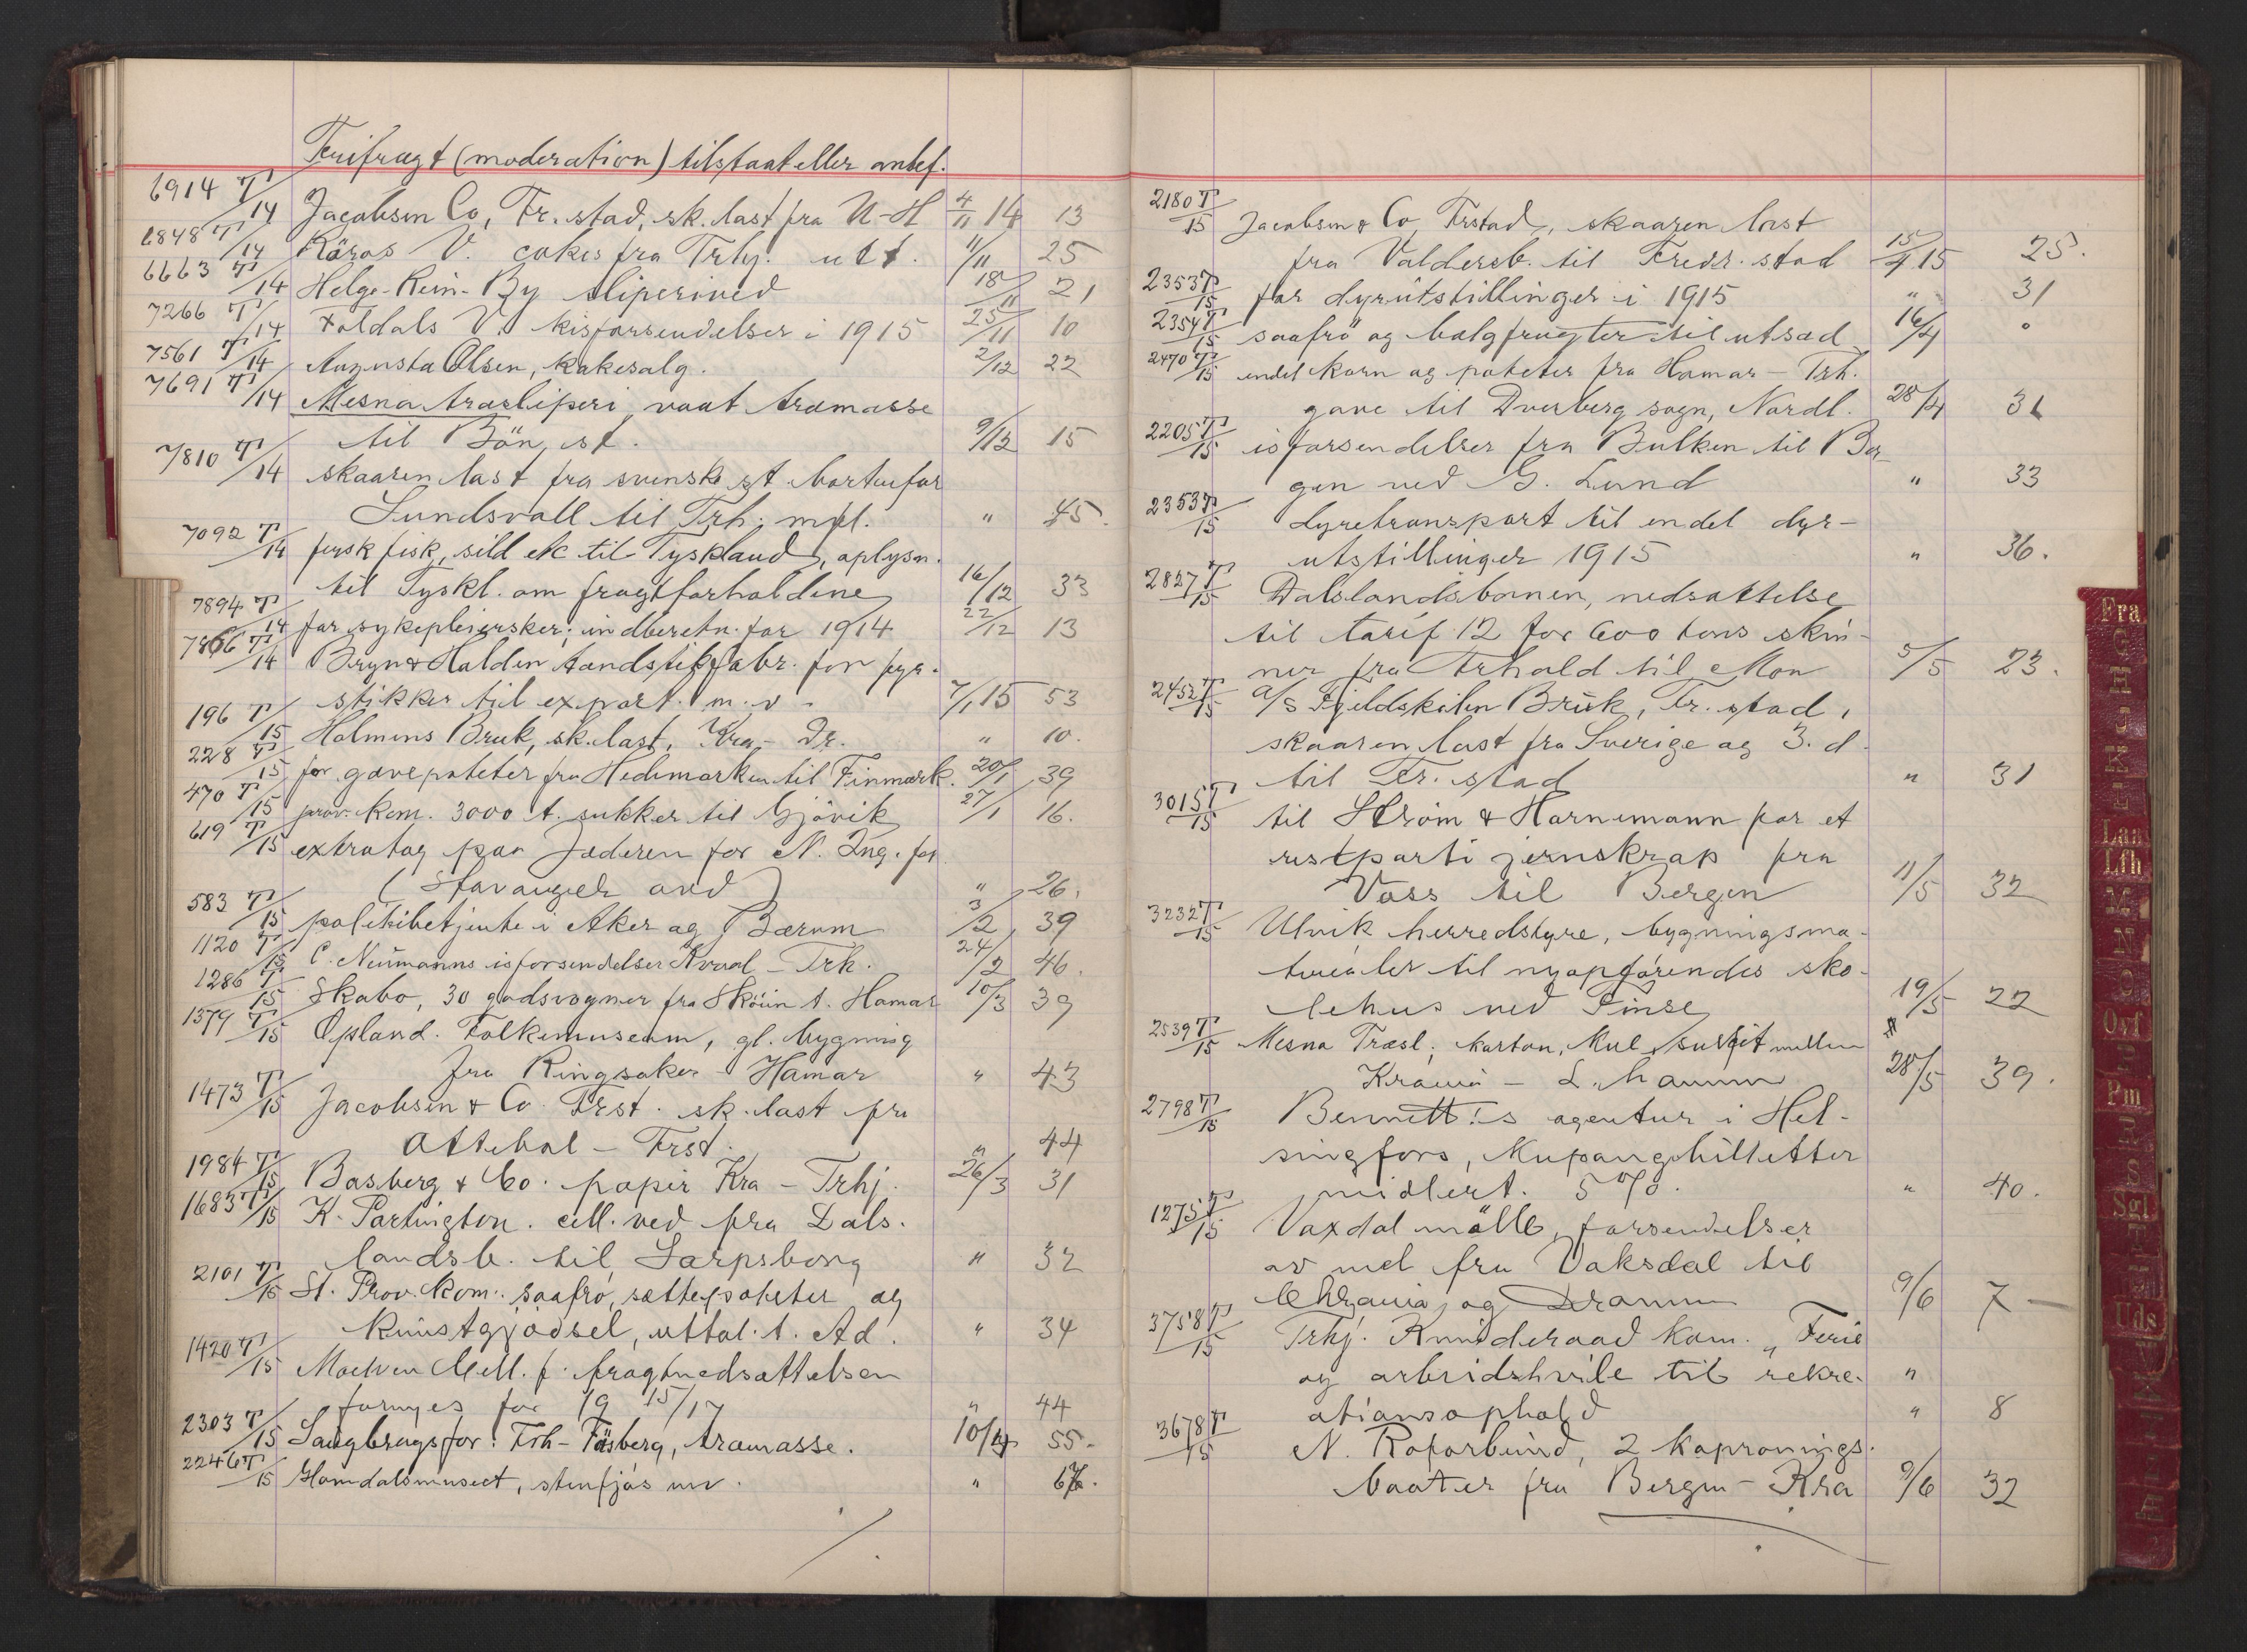 Frifragt (moderation) tilstaat eller anbef.
6914 T/14 Jacobsen Co, Fr.stad, sk. last fra U-H 4/11 14 13
6848 T/14 Röros V. cokes fra Trhj. utt. 11/11 25
6663 T/14 Helge-Rein-By sliperived 18/11 21
7266 T/14 Foldals V. kisforsendelser i 1915 25/11 10
7561 T/14 Augusta Olsen, kakesalg. 2/12 22
7691 T/14 Mesna træsliperi, vaat træmasse
til Bön st. 9/12 15
7810 T/14 skaaren last fra svensk st. bortenfor
Sundsvall til Trh. mfl. " 45.
7092 T/14 fersk fisk, sild etc til Tyskland, oplysn.
til Tyskl. om fragtforholdene 16/12 33
7894 T/14 for sykepleiersker; indberetn. for 1914 22/12 13
7866 T/14 Bryn & Halden tændstikfabr. for fyr-
stikker til export m.v. 7/1 15 53
196 T/15 Holmens Bruk, sk. last, Kra - Dr. " 10.
228 T/15 for gavepoteter fra Hedemarken til Finmark. 20/1 39
470 T/15 prov. kom. 3000 t. sukker til Gjövik 27/1 16.
619 T/15 extratog paa Jæderen for N. Ing. for.
(Stavanger avd) " 26.
583 T/15 politibetjente i Aker og Bærum 3/2 39
1120 T/15 C. Neumanns isforsendelser Kvaal - Trh. 24/2 46.
1286 T/15 Skabo, 30 godsvogner fra Sköien t. Hamar 10/3 39
1379 T/15 Opland. Folkemuseum, gl. bygning
fra Ringsaker - Hamar " 43
1473 T/15 Jacobsen & Co. Frst. sk. last fra
Ottebol - Frst. " 44
1984 T/15 Basberg & Co. papir Kra - Trhj. 26/3 31
1683 T/15 K. Partington. cell. ved fra Dals-
landsb. til Sarpsborg " 32
2101 T/15 St. Prov. kom.: saafrö, sættepoteter og
kunstgjödsel, uttal. t. Ad. " 34
1420 T/15 Moelven Cell. f. fragtnedsættelsen
fornyes for 19 15/17 " 44
2303 T/15 Saugbrugsfor: Frh - Fåsberg, træmasse. 10/4 55.
2246 T/15 Glomdalsmuseet, stenfjös mv. " 67.
2180 T/15 Jacobsen & Co Frstad, skaaren last
fra Valdersb. til Fredr.stad 15/4 15 25.
2353 T/15 for dyrutstillinger i 1915 " 31
2354 T/15 saafrö og bælgfrugter til utsæd 16/4 "
2470 T/15 endel korn og poteter fra Hamar - Trh.
gave til Dverberg sogn, Nordl. 28/4 31
2205 T/15 isforsendelser fra Bulken til Ber-
gen ved G. Lund " 33
2353 T/15 dyretransport til endel dyr-
utstillinger 1915 " 36.
2827 T/15 Dalslandsbanen, nedsættelse
til tarif 12 for 600 tons skin-
ner fra Århald til Mon 5/5 23.
2452 T/15 A/S Fjeldskilen Brük, Fr.stad,
skaaren last fra Sverige og 3. d.
til Fr.stad " 31
3015 T/15 til Ström & Hornemann for et
restparti jernskrap fra
Voss til Bergen 11/5 32
3232 T/15 Ulvik herredstyre, bygningsma-
terialer til nyopförendes sko-
lehus ved Finse 19/5 22
2539 T/15 Mesna Træsl; karton, kul, sulfit mellem
Krania - L.hammer 28/5 39.
2798 T/15 Bennett's agentur i Hel-
singfors, kupongbilletter
midlert. 5 %. " 40.
1275 T/15 Vaxdal mölle, forsendelser
av mel fra Vaksdal til
Chrania og Dramm 9/6 7 —
3758 T/15 Trhj. Kvinderaad kom. "Ferie
og arbeidshvile til rekre- "
ationsophold " 8
3678 T/15 N. Roforbund, 2 kaproings-
baater fra Bergen - Kra 9/6 32
Fra
G
H
I J
K
L
Laa
Lfh
M
N
O
Ovf
P
Pm
R
S
Sgl
T
Uds